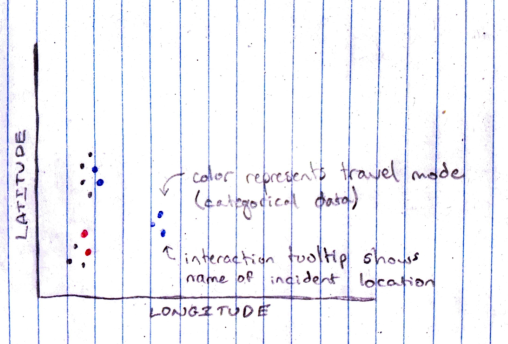 LATITUDE
color represents travel mode
(categorical data)
interaction tooltip shows
name of incident location
LONGITUDE